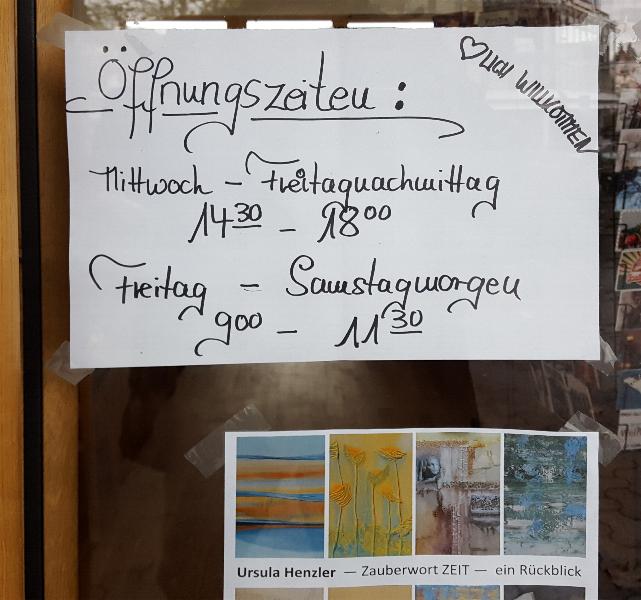 Öffnungszeiten :
♡LICH WILLKOMMEN
Mittwoch – Freitagnachmittag
14 30 – 18 00
Freitag – Samstagmorgen
9 00 – 11 30
Ursula Henzler — Zauberwort ZEIT — ein Rückblick